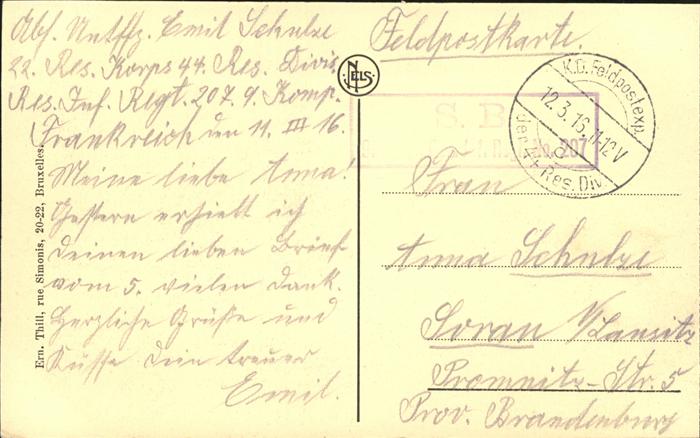 Abs. Untffz. Emil Schulze
22. Res. Korps 44. Res. Divis.
Res. Inf. Regt. 207. 9. Komp.
Frankreich den 11. III 16.
Meine liebe Anna!
Gestern erhielt ich
deinen lieben Brief
vom 5. vielen Dank.
Herzliche Grüße und
Küsse dein treuer
Emil.
Ern. Thill, rue Simonis, 20-22, Bruxelles.
NELS
Feldpostkarte.
S. B.
207
K.D. Feldpostexp.
12.3.16. 11-12V
der 44. Res. Div.
Frau
Anna Schulze
Sorau N/Lausitz
Promnitz-Str. 5
Prov. Brandenburg